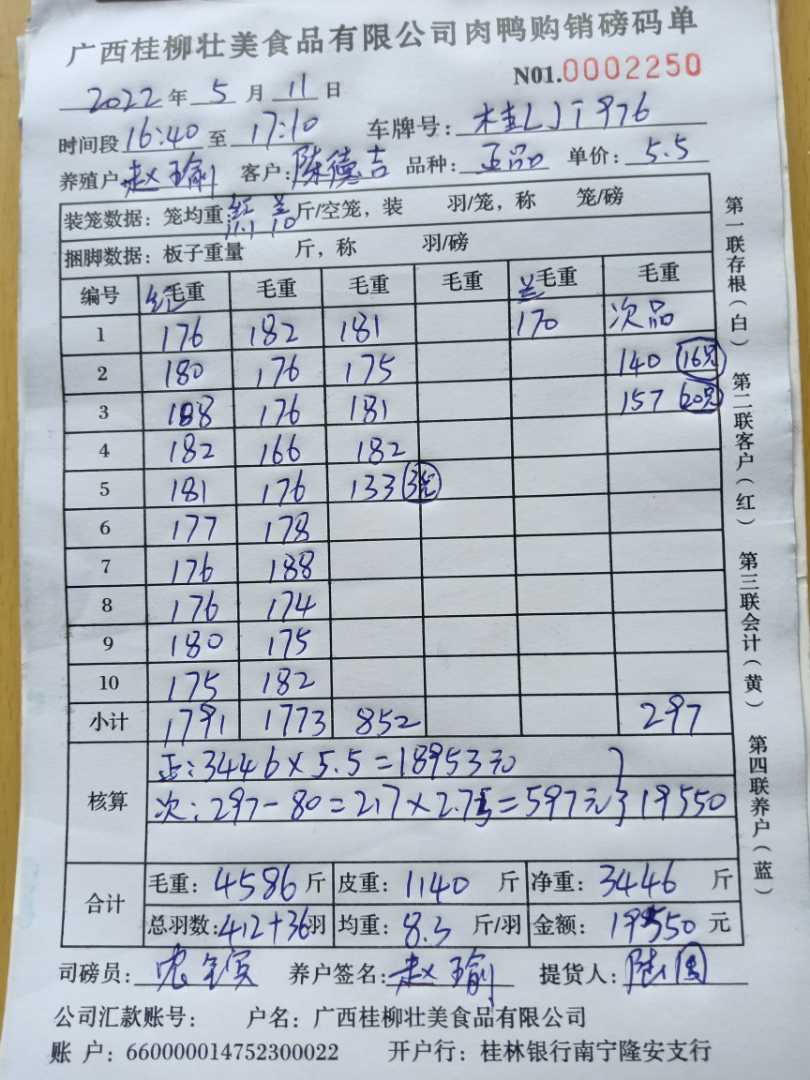 广西桂柳壮美食品有限公司肉鸭购销磅码单
N01.0002250
2022年5月11日
时间段16:40至17:10 车牌号:桂LJT976
养殖户赵瑜 客户:陈德吉 品种:正品 单价:5.5
装笼数据:笼均重:红11.1 兰10斤/空笼,装 羽/笼,称 笼/磅
捆脚数据:板子重量 斤,称 羽/磅
编号 红毛重 毛重 毛重 毛重 兰毛重 毛重
1 176 182 181 170 次品
2 180 176 175 140 16只
3 188 176 181 157 20只
4 182 166 182
5 181 176 133 3笼
6 177 178
7 176 188
8 176 174
9 180 175
10 175 182
小计 1791 1773 852 297
核算
正:3446×5.5=18953元
次:297-80=217×2.75=597元 19550
合计
毛重:4586斤 皮重:1140斤 净重:3446斤
总羽数:412+36羽 均重:8.3斤/羽 金额:19550元
司磅员: 养户签名:赵瑜 提货人:
公司汇款账号: 户名:广西桂柳壮美食品有限公司
账户:660000014752300022 开户行:桂林银行南宁隆安支行
第一联存根(白) 第二联客户(红) 第三联会计(黄) 第四联养户(蓝)